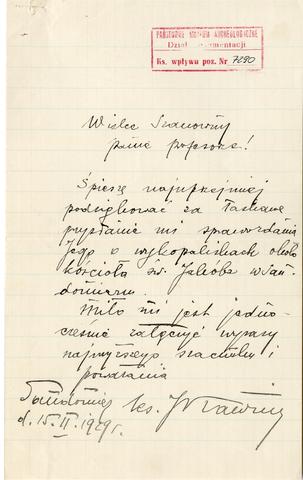 PAŃSTWOWE MUZEUM ARCHEOLOGICZNE
Dział Dokumentacji
Ks. wpływu poz. Nr 7290
Wielce Szanowny
panie profesorze!
Śpieszę najuprzejmiej
podziękować za łaskawe
przysłanie mi sprawozdania
Jego o wykopaliskach około
kościoła św. Jakóba w San-
domierzu.
Miło mi jest jedno-
cześnie załączyć wyrazy
najwyższego szacunku i
poważania
Sandomierz ks. J
d. 15. II. 1929 r.